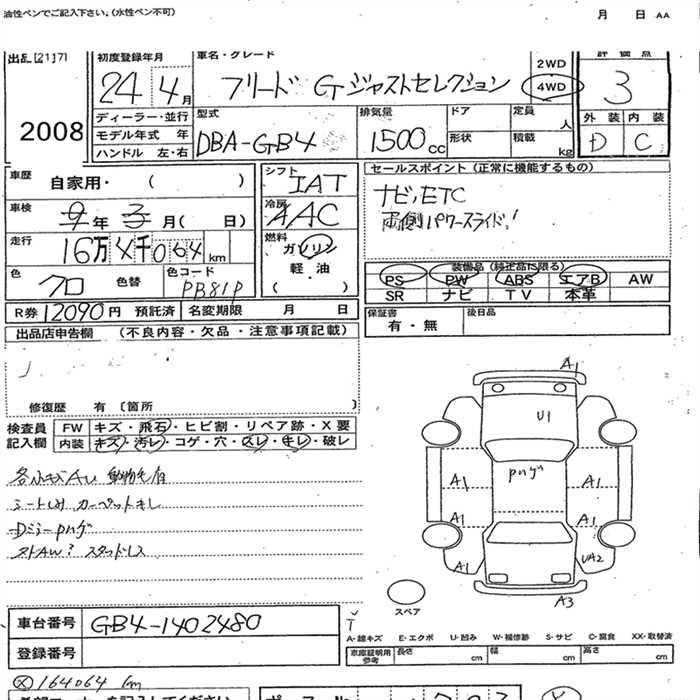 油性ペンでご記入下さい。(水性ペン不可) 月 日 AA
出品 [21]7] 初度登録年月 車名・グレード 評価点
24 4月 フリード G ジャストセレクション 2WD 4WD 3
2008
ディーラー・並行 型式 排気量 ドア 定員 人 外装 内装
モデル年式 年 DBA-GB4 1500cc 形状 積載 kg D C
ハンドル 左・右
車歴 自家用・ ( ) シフト IAT セールスポイント (正常に機能するもの)
車検 9年 3月 ( 日) 冷房 AAC ナビ,ETC
両側パワースライド!
走行 16万4千064km 燃料 ガソリン 軽・油 ( )
色 クロ 色替 色コード PB81P
装備品 (純正品に限る)
PS PW ABS エアB AW
SR ナビ TV 本革
R券 12090円 預託済 名変期限 月 日
保証書 有・無 後日品
出品店申告欄 (不良内容・欠品・注意事項記載)
修復歴 有 〔箇所 〕
検査員 FW キズ・飛石・ヒビ割・リペア跡・X要
記入欄 内装 キズ・汚レ・コゲ・穴・スレ・キレ・破レ
各小キズAU 動物毛有
シートしみ カーペットキレ
Dミラーpハゲ
ストAW? スタッドレス
A1
U1
pハゲ
A1 A1
A1 A1
A1 UA2
A3
スペア
車台番号 GB4-1402480
登録番号
A-線キズ E-エクボ U-凹み W-補修跡 S-サビ C-腐食 XX-取替済
車庫証明用参考 長さ cm 幅 cm 高さ cm
164064 km